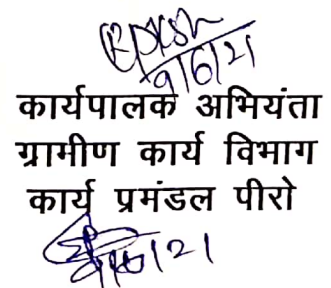 9/6/21
कार्यपालक अभियंता
ग्रामीण कार्य विभाग
कार्य प्रमंडल पीरो
9/6/21